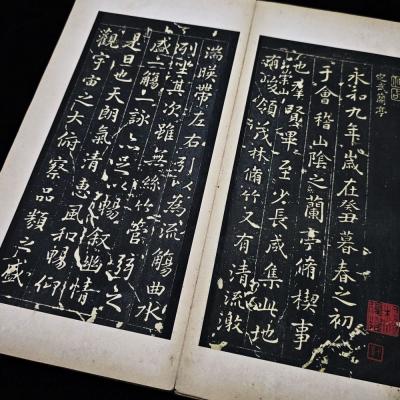 定武蘭亭
永和九年歲在癸丑暮春之初
于會稽山陰之蘭亭脩稧事
也羣賢畢至少長咸集此地
有崇山峻領茂林脩竹又有清流激
湍暎帶左右引以為流觴曲水
列坐其次雖無絲竹管弦之
盛一觴一詠亦足以暢叙幽情
是日也天朗氣清惠風和暢仰
觀宇宙之大俯察品類之盛